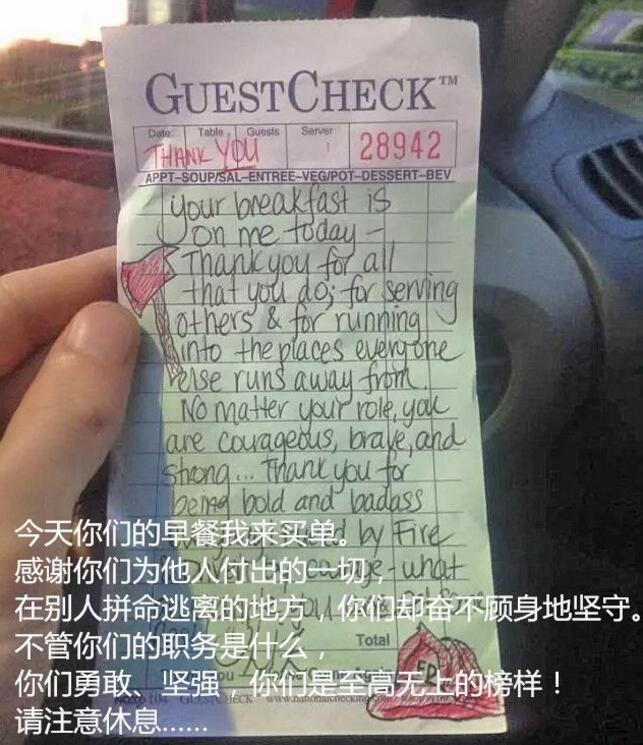 GUESTCHECK™
Date Table Guests Server
THANK YOU 28942
APPT-SOUP/SAL-ENTREE-VEG/POT-DESSERT-BEV
your breakfast is
on me today -
Thank you for all
that you do; for serving
others & for running
into the places everyone
else runs away from.
No matter your role, you
are courageous, brave, and
strong... Thank you for
being bold and badass
今天你们的早餐我来买单。
by Fire
感谢你们为他人付出的一切，
- what
在别人拼命逃离的地方，你们却奋不顾身地坚守。
不管你们的职务是什么，
Total
你们勇敢、坚强，你们是至高无上的榜样！
FD
GUESTCHECK
请注意休息……